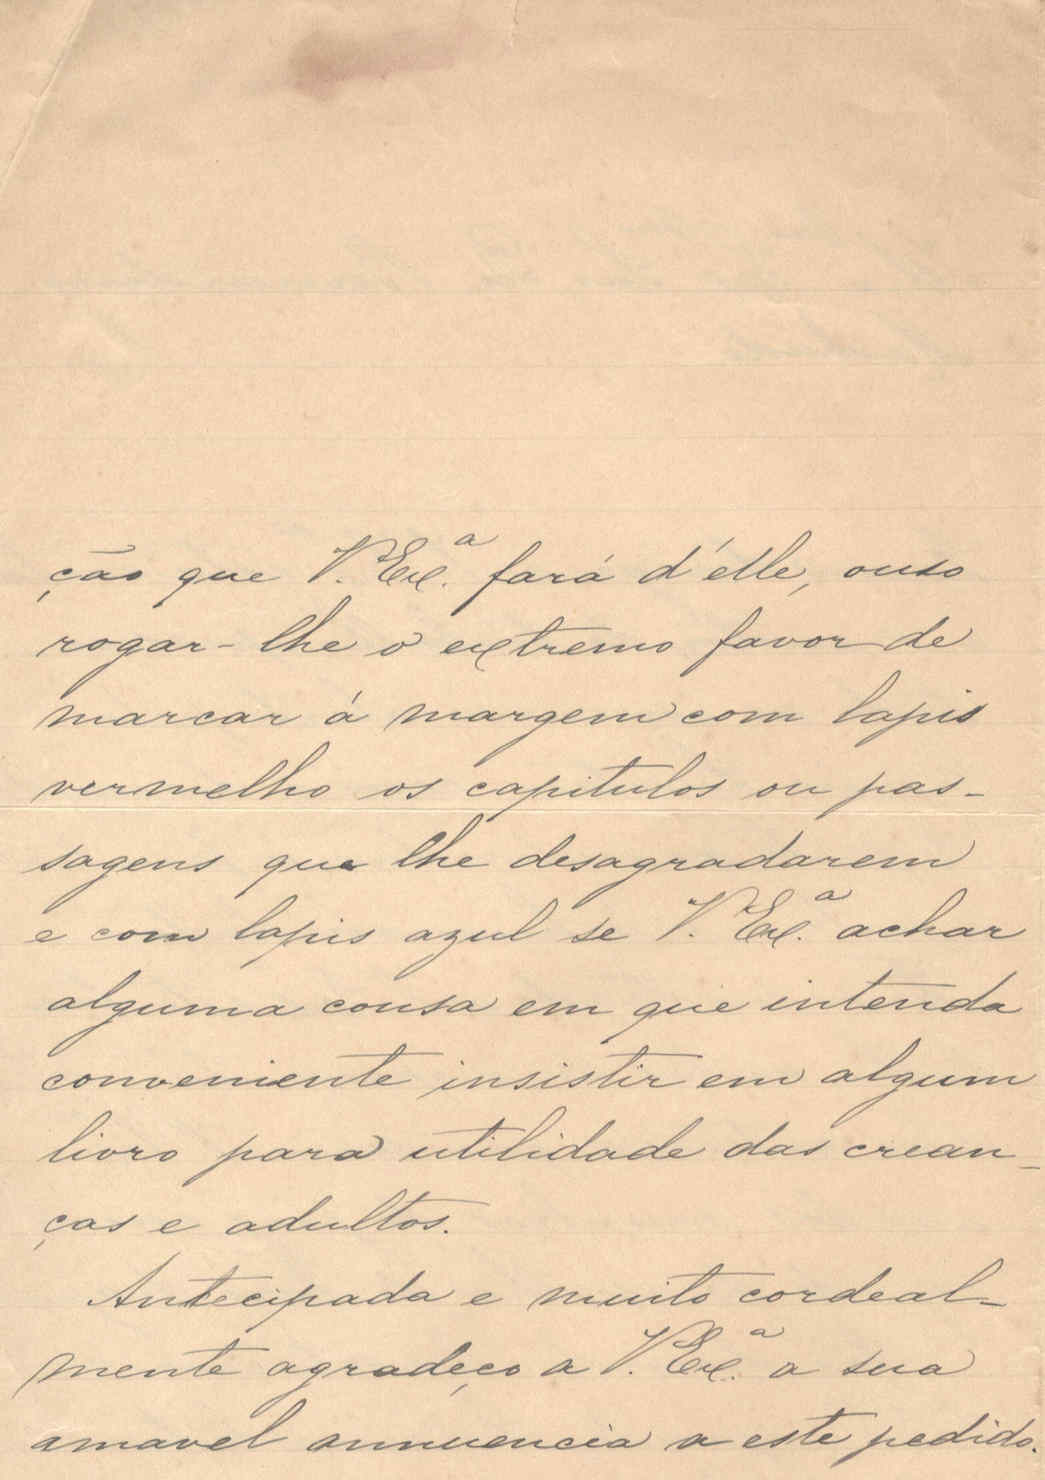 ção que V. Ex.ª fará d'elle, ouso
rogar-lhe o extremo favor de
marcar á margem com lapis
vermelho os capitulos ou pas-
sagens que lhe desagradarem
e com lapis azul se V. Ex.ª achar
alguma cousa em que intenda
conveniente insistir em algum
livro para utilidade das crean-
ças e adultos.
Antecipada e muito cordeal-
mente agradeço a V. Ex.ª a sua
amavel annuencia a este pedido.